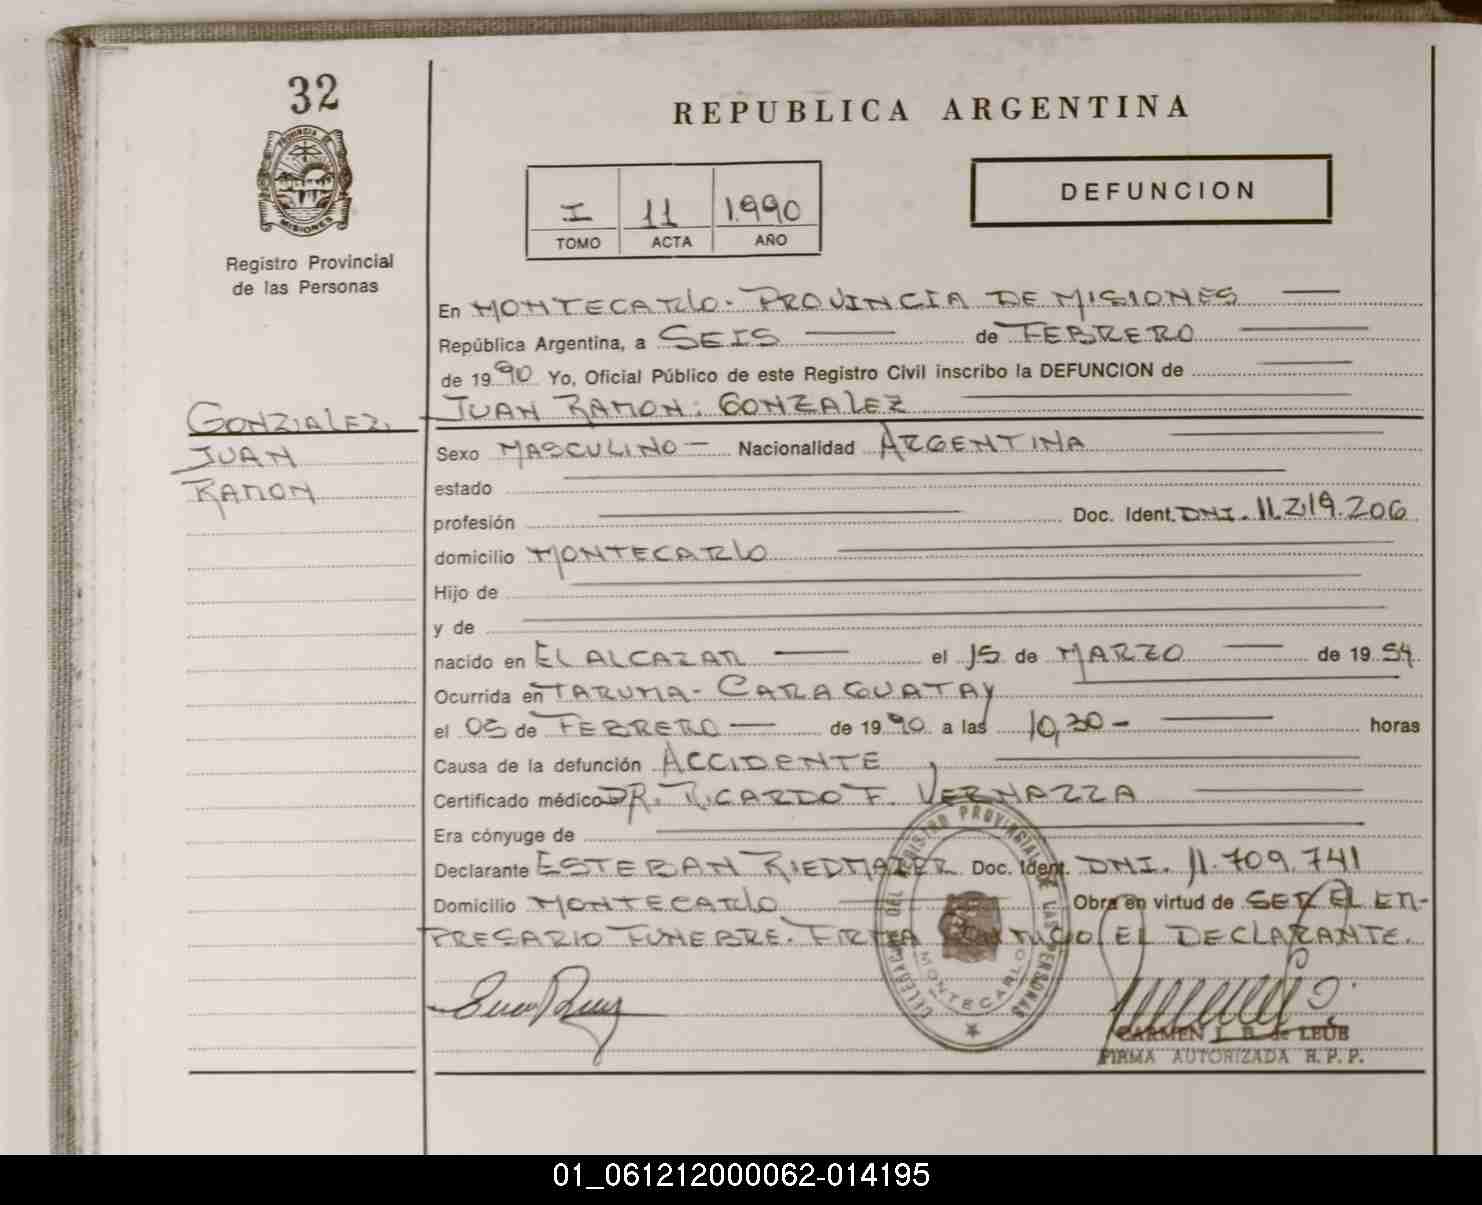 32
PROVINCIA DE
MISIONES
Registro Provincial
de las Personas
REPUBLICA ARGENTINA
I 11 1990
TOMO ACTA AÑO
DEFUNCION
En MONTECARLO. PROVINCIA DE MISIONES
República Argentina, a SEIS de FEBRERO
de 1990 Yo, Oficial Público de este Registro Civil inscribo la DEFUNCION de
JUAN RAMON. GONZALEZ
GONZALEZ,
JUAN
RAMON
Sexo MASCULINO - Nacionalidad ARGENTINA
estado
profesión Doc. Ident. DNI. 11.219.206
domicilio MONTECARLO
Hijo de
y de
nacido en EL ALCAZAR el 15 de MARZO de 1954.
Ocurrida en TARUMA - CARAGUATAY
el 05 de FEBRERO de 1990 a las 10,30 - horas
Causa de la defunción ACCIDENTE
Certificado médico DR. RICARDO F. VERNAZZA
Era cónyuge de
Declarante ESTEBAN RIEDMAIER Doc. Ident. DNI. 11.709.741
Domicilio MONTECARLO Obra en virtud de SER EL EM-
PRESARIO FUNEBRE. FIRMA EL DECLARANTE.
DEL REGISTRO PROVINCIAL DE LAS PERSONAS
MONTECARLO
CARMEN de LEUB
FIRMA AUTORIZADA R. P. P.
01_061212000062-014195